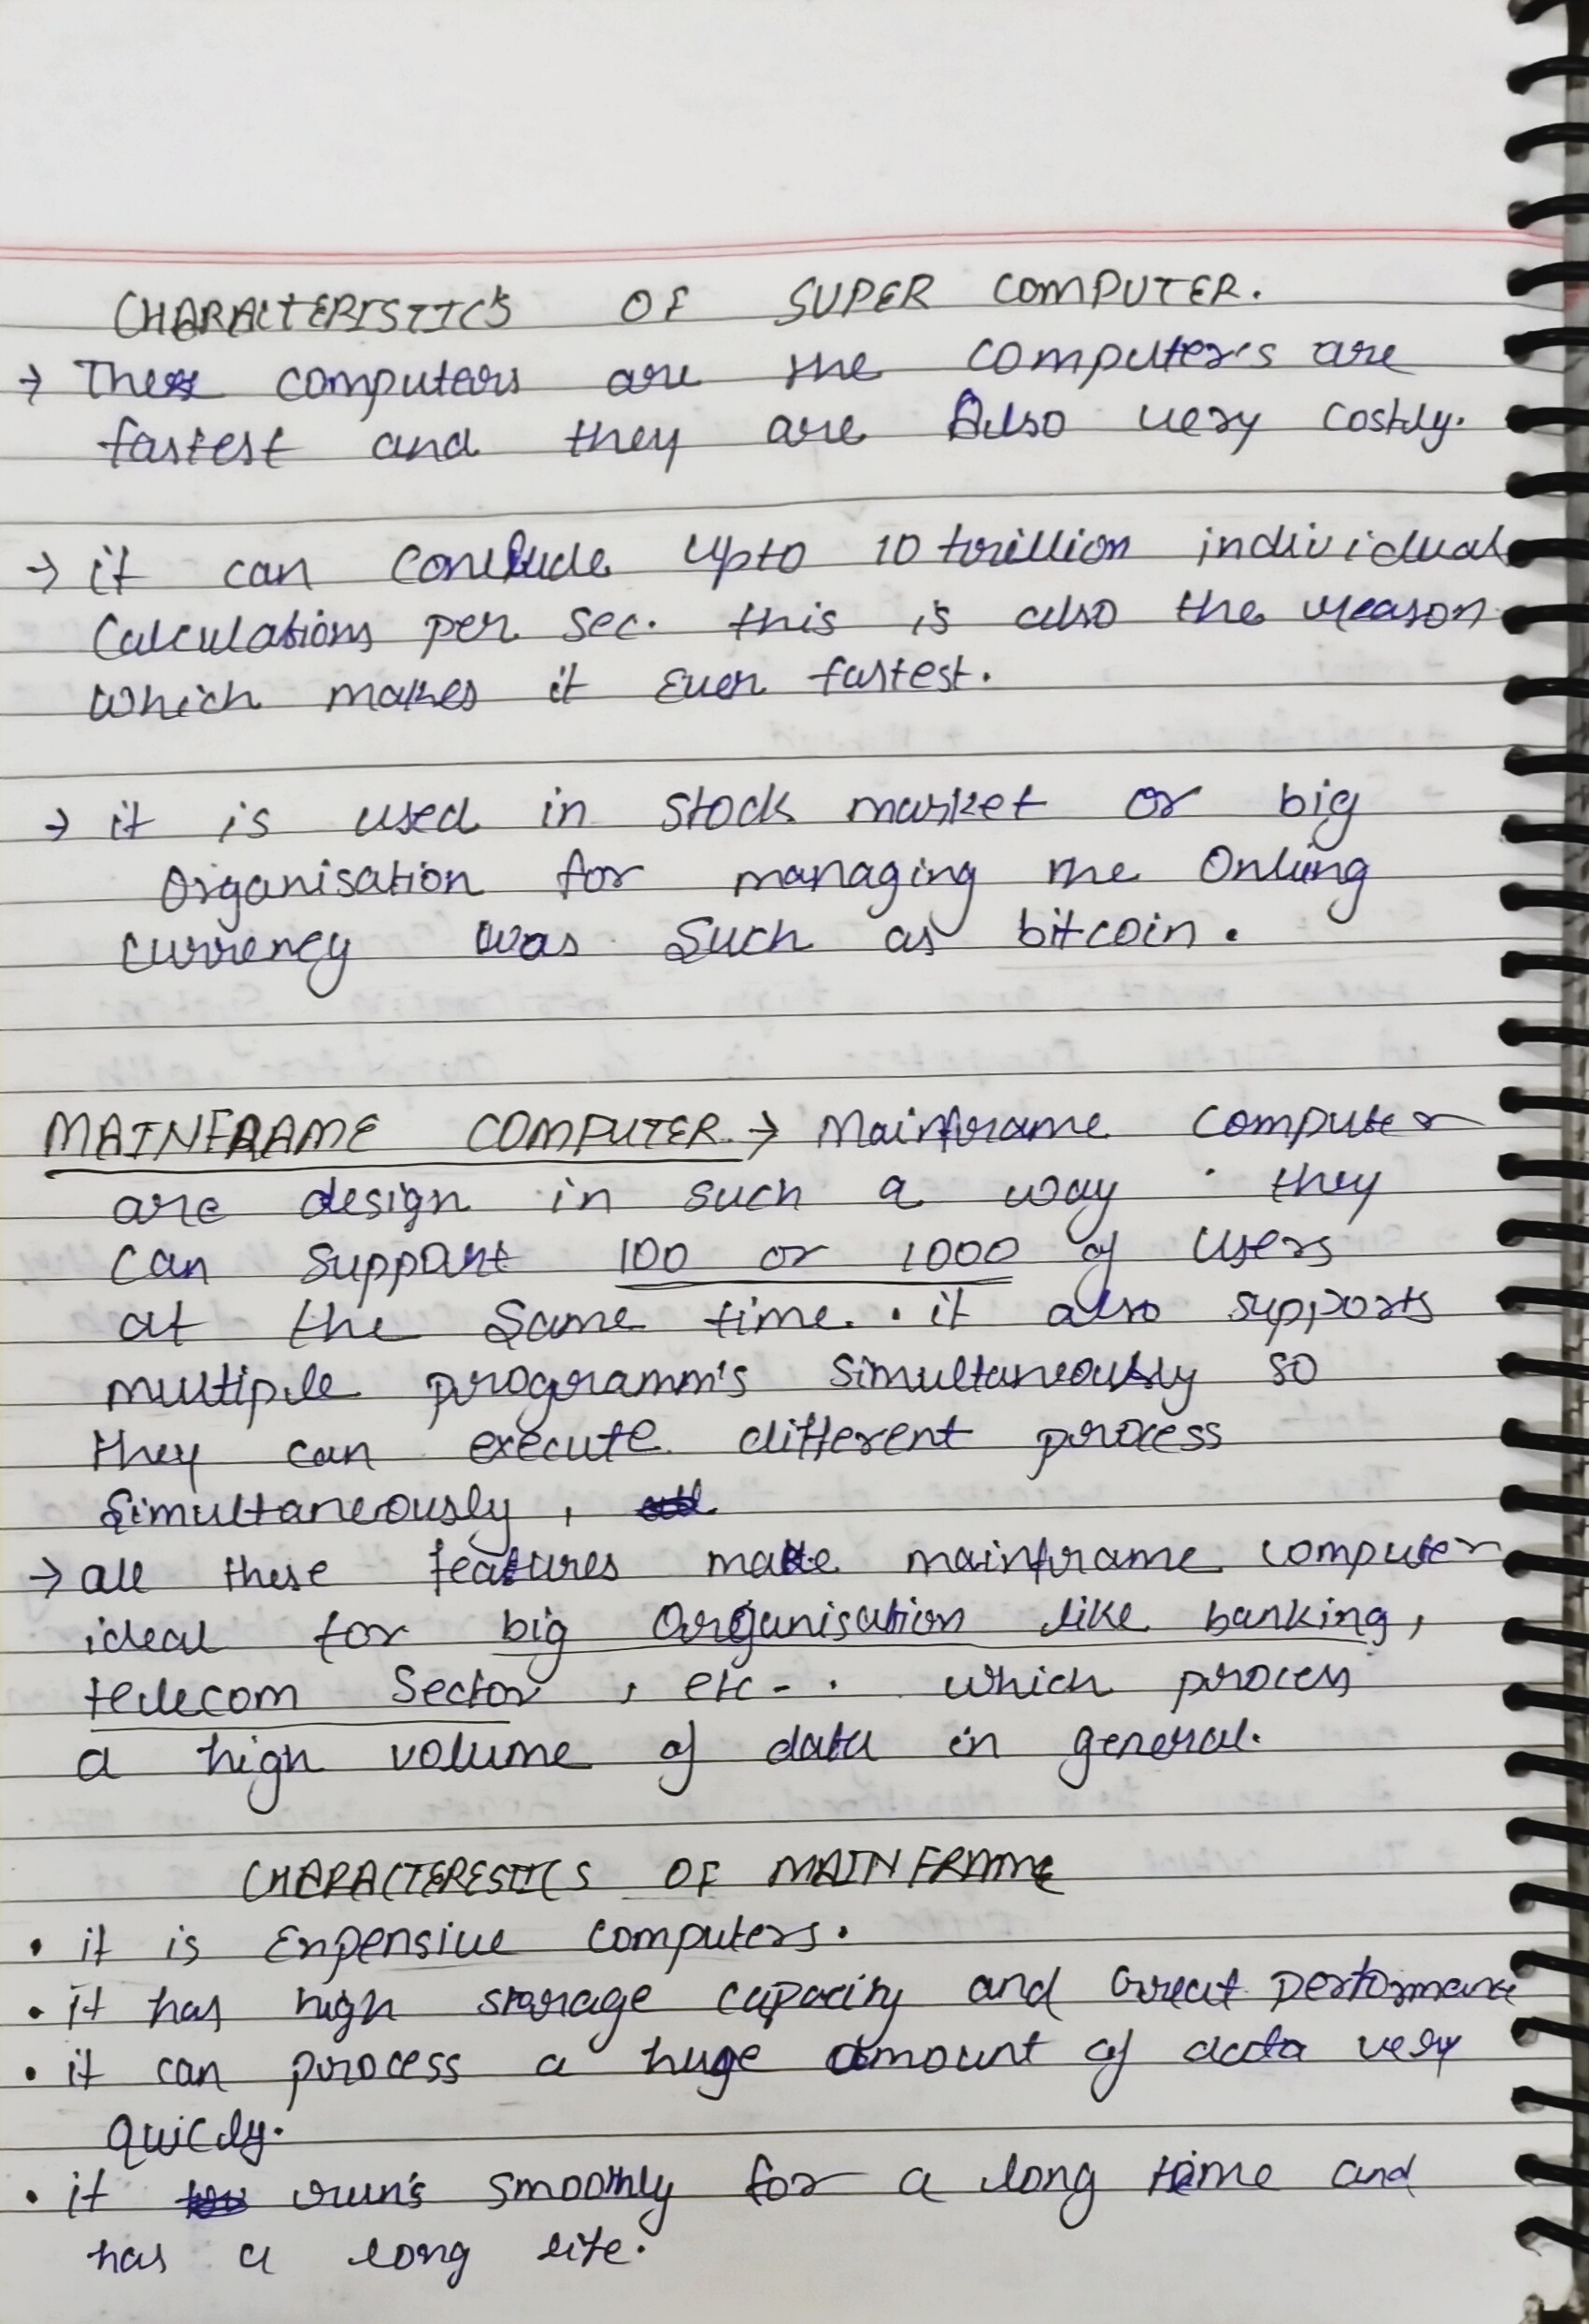 CHARACTERISTICS OF SUPER COMPUTER.
→ These computers are the computer's are
fastest and they are Also very costly.
→ it can conclude upto 10 trillion individual
Calculations per sec. this is also the reason
which makes it Even fastest.
→ it is used in stock market or big
Organisation for managing the Onling
currency was Such as bitcoin.
MAINFRAME COMPUTER → Mainframe Computer
are design in such a way they
can support 100 or 1000 of users
at the Same time. it also supports
multiple programm's simultaneously so
they can execute different process
Simultanerously,
→ all these features make mainframe computer
ideal for big Organisation like banking,
telecom Sector, etc-. which process
a high volume of data in general.
CHARACTERESTICS OF MAINFRAME
• it is Expensive computers.
• it has high storage capacity and Great performance
• it can process a huge amount of data very
quicly.
• it run's smoothly for a long time and
has a long life.